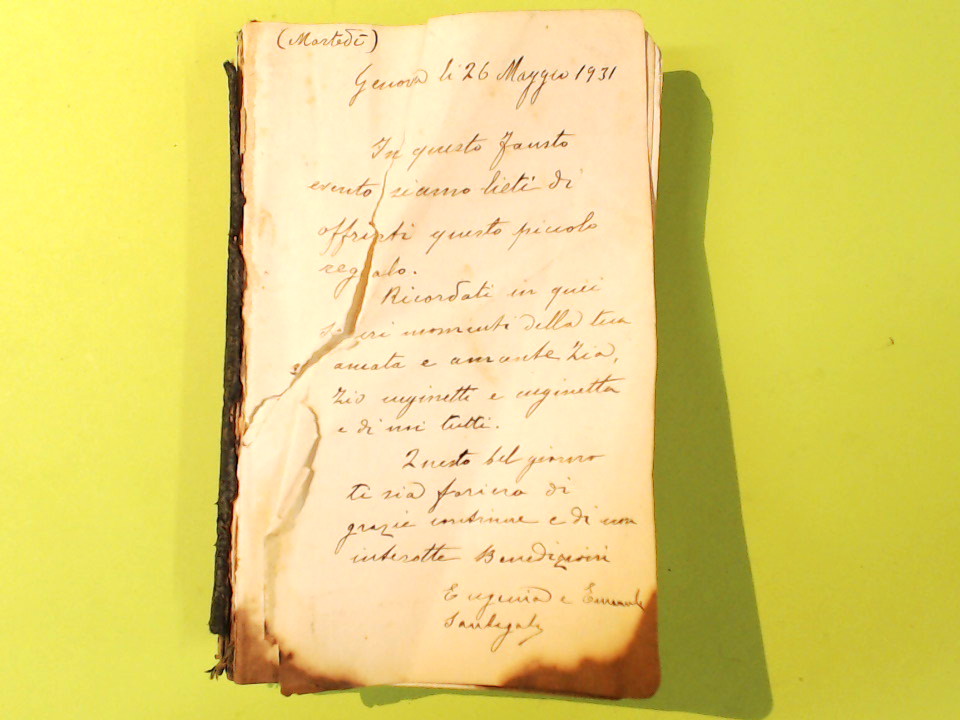 (Martedì)
Genova li 26 Maggio 1931
In questo fausto
evento siamo lieti di
offrirti questo piccolo
regalo.
Ricordati in quei
momenti della tua
amata e amante Zia,
Zio cuginetti e cuginetta
e di noi tutti.
Questo bel giorno
ti sia foriero di
grazie continue e di non
interotte Benedizioni
Eugenia e